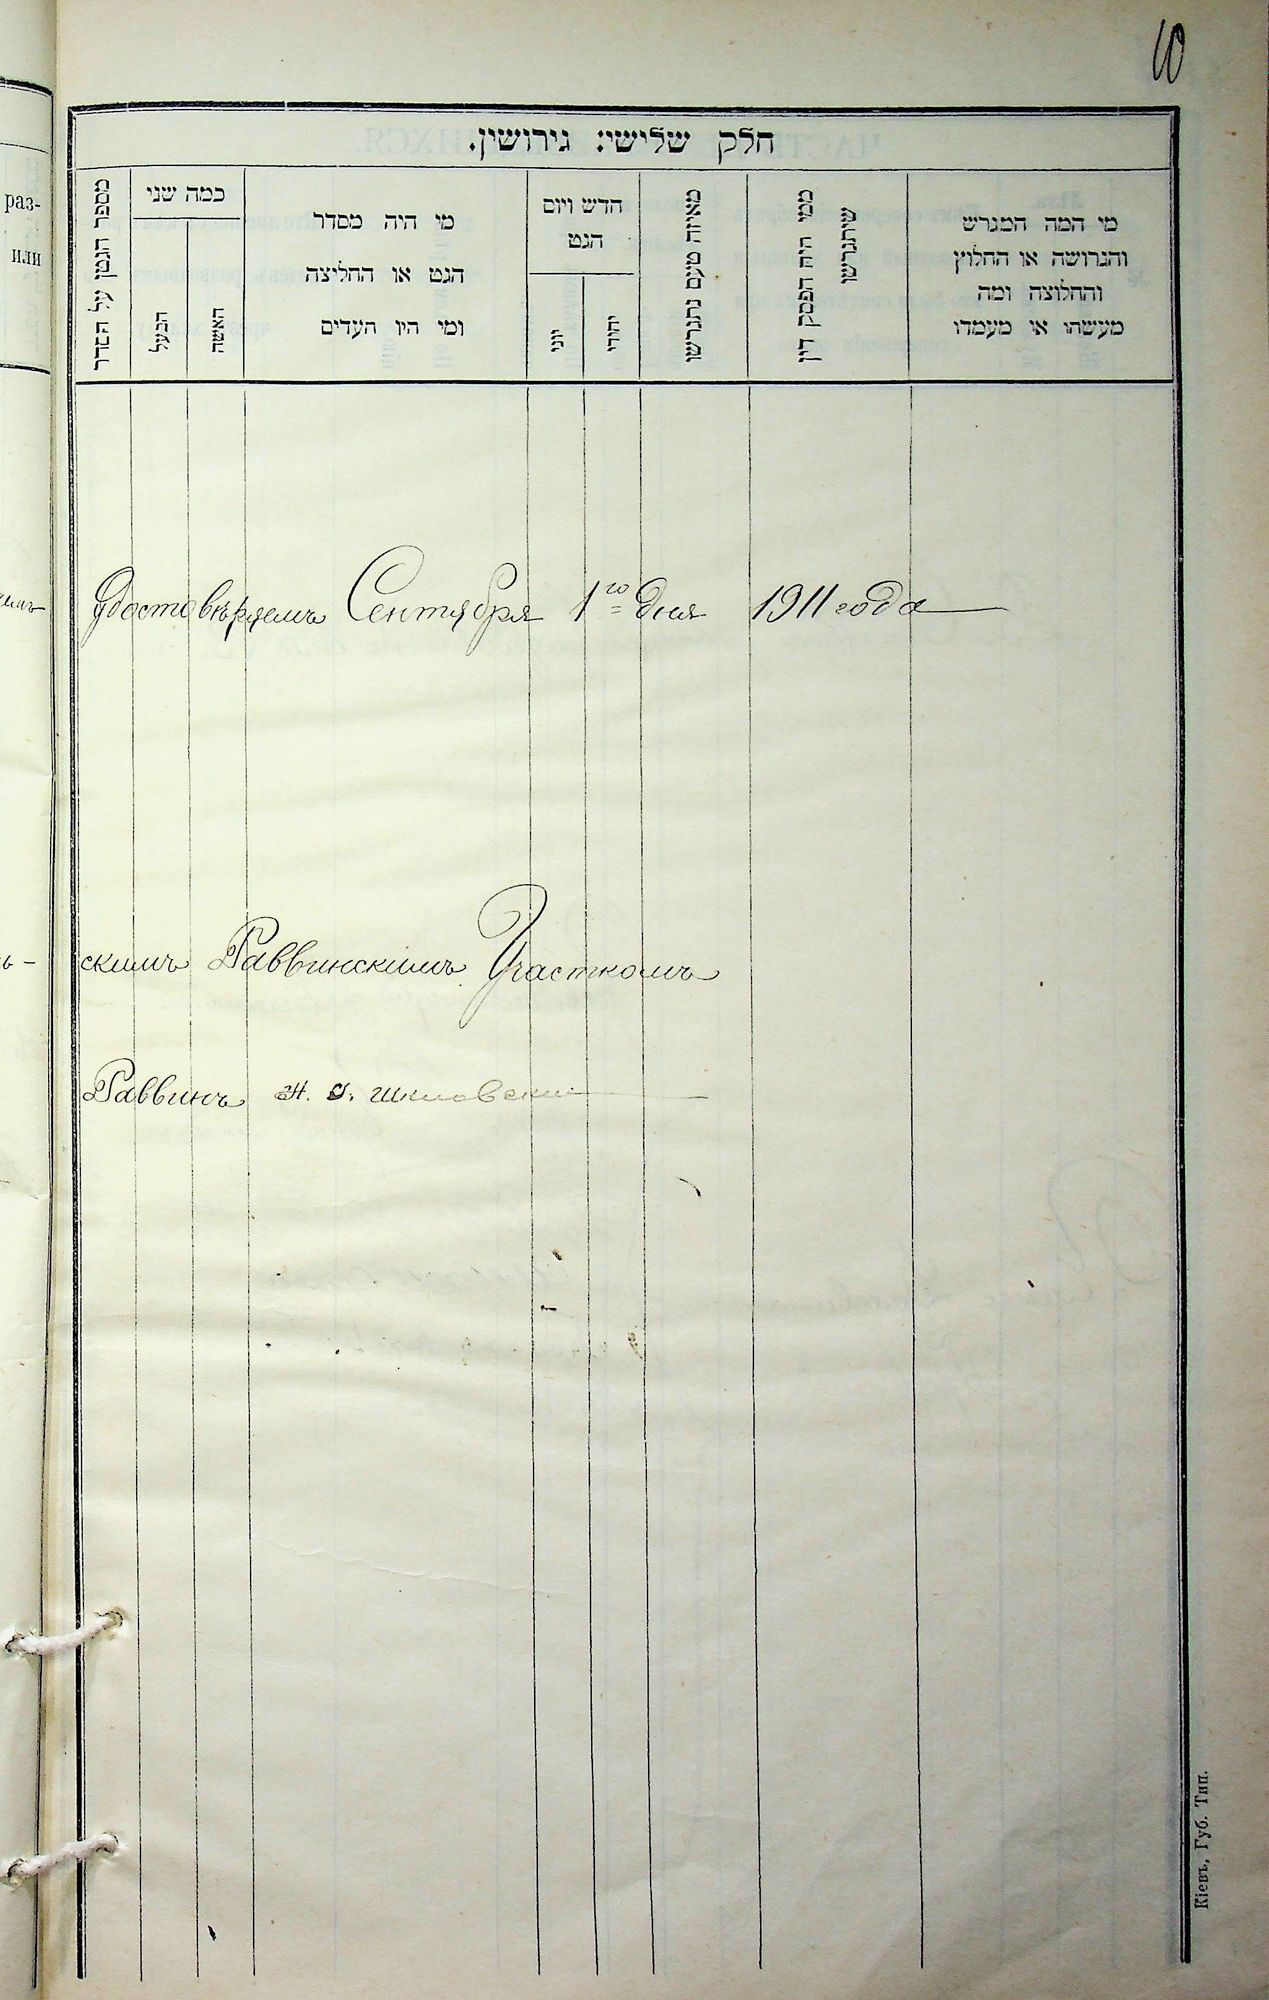 10
חלק שלישי: גירושין.
מי המה המגרש
והגרושה או החלוץ
והחלוצה ומה
מעשהו או מעמדו
ממי היה הפסק דין
שיתגרשו
מאיזה טעם נתגרשו
חדש ויום
הגט
יהודי
יוני
מי היה מסדר
הגט או החליצה
ומי היו העדים
כמה שני
האשה
הבעל
מספר הגטין על הסדר
раз-
или
Удостовѣряемъ Сентября 1го дня 1911 года
скимъ Раввинскимъ Участкомъ
Раввинъ
Кіевъ, Губ. Тип.